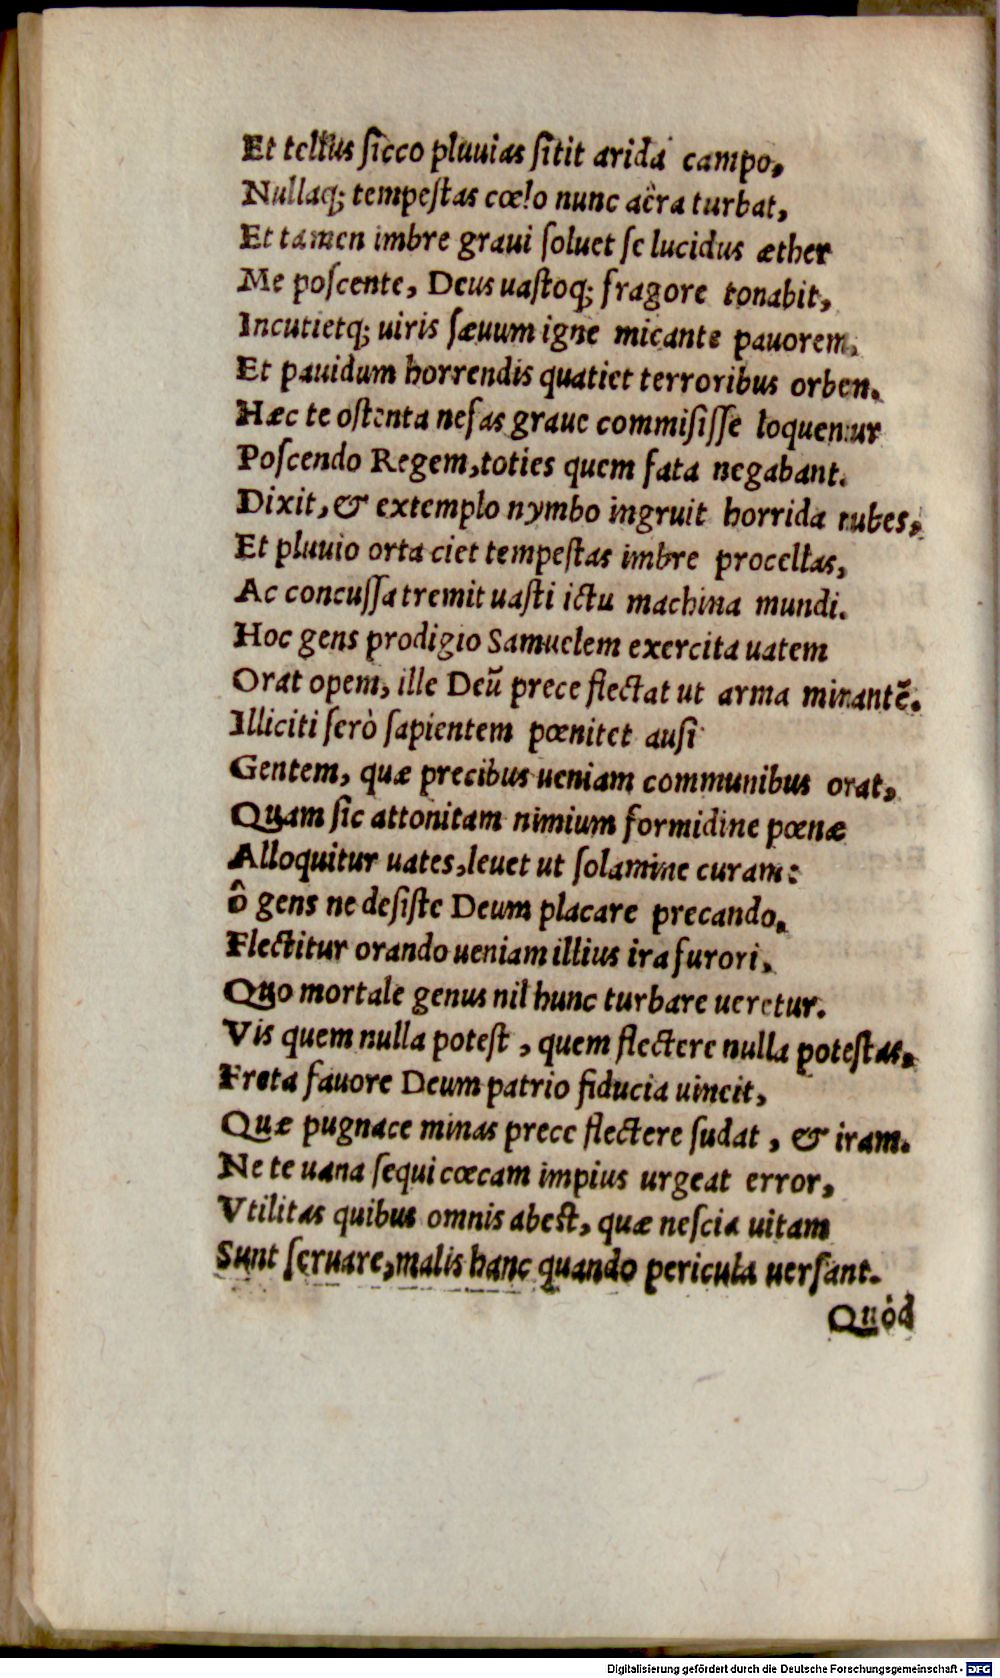 Et tellus sicco pluuias sitit arida campo,
Nullaq; tempestas cœlo nunc aëra turbat,
Et tamen imbre graui soluet se lucidus æther
Me poscente, Deus uastoq; fragore tonabit,
Incutietq; uiris sæuum igne micante pauorem,
Et pauidum horrendis quatiet terroribus orben.
Hæc te ostenta nefas graue commisisse loquentur
Poscendo Regem, toties quem fata negabant.
Dixit, & extemplo nymbo ingruit horrida nubes,
Et pluuio orta ciet tempestas imbre procellas,
Ac concussa tremit uasti ictu machina mundi.
Hoc gens prodigio Samuelem exercita uatem
Orat opem, ille Deũ prece flectat ut arma minantẽ.
Illiciti serò sapientem pœnitet ausi
Gentem, quæ precibus ueniam communibus orat,
Quam sic attonitam nimium formidine pœnæ
Alloquitur uates, leuet ut solamine curam:
ô gens ne desiste Deum placare precando,
Flectitur orando ueniam illius ira furori,
Quo mortale genus nil hunc turbare ueretur.
Vis quem nulla potest, quem flectere nulla potestas,
Freta fauore Deum patrio fiducia uincit,
Quæ pugnace minas prece flectere sudat, & iram.
Ne te uana sequi cœcam impius urgeat error,
Vtilitas quibus omnis abest, quæ nescia uitam
Sunt seruare, malis hanc quando pericula uersant.
Quòd
Digitalisierung gefördert durch die Deutsche Forschungsgemeinschaft - DFG